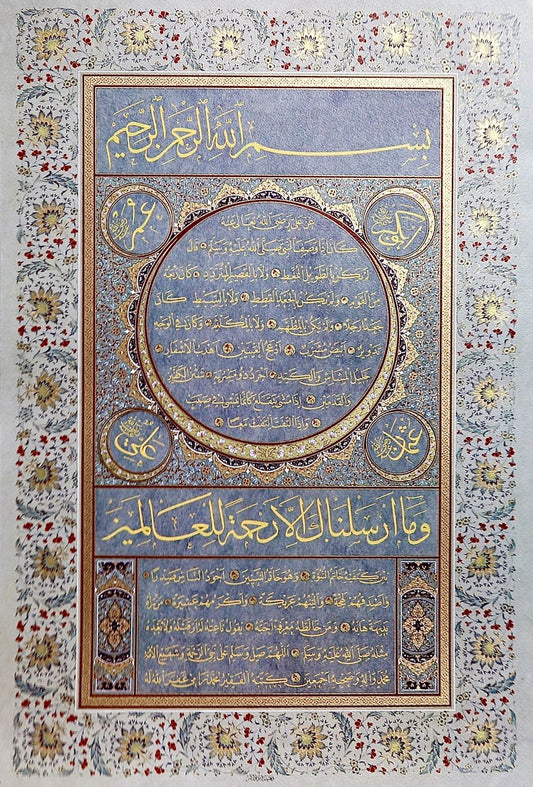 بسم الله الرحمن الرحيم
ابوبكر
عمر
عن علي رضي الله تعالى عنه
كان اذا وصف النبي صلى الله عليه وسلم قال
لم يكن بالطويل الممغط ولا بالقصير المتردد كان ربعة
من القوم ولم يكن بالجعد القطط ولا بالسبط كان
جعدا رجلا ولم يكن بالمطهم ولا بالمكلثم وكان في الوجه
تدوير ابيض مشرب ادعج العينين اهدب الاشفار
جليل المشاش والكتد اجرد ذو مسربة شثن الكفين
والقدمين اذا مشى يتقلع كانما يمشي في صبب
واذا التفت التفت معا
عثمان
علي
وما ارسلناك الا رحمة للعالمين
بين كتفيه خاتم النبوة وهو خاتم النبيين اجود الناس صدرا
واصدقهم لهجة والينهم عريكة واكرمهم عشيرة من رآه
بديهة هابه ومن خالطه معرفة احبه يقول ناعته لم ار قبله ولا بعده
مثله صلى الله عليه وسلم اللهم صل وسلم على نبي الرحمة وشفيع الامة
محمد وآله وصحبه اجمعين كتبه الفقير محمد